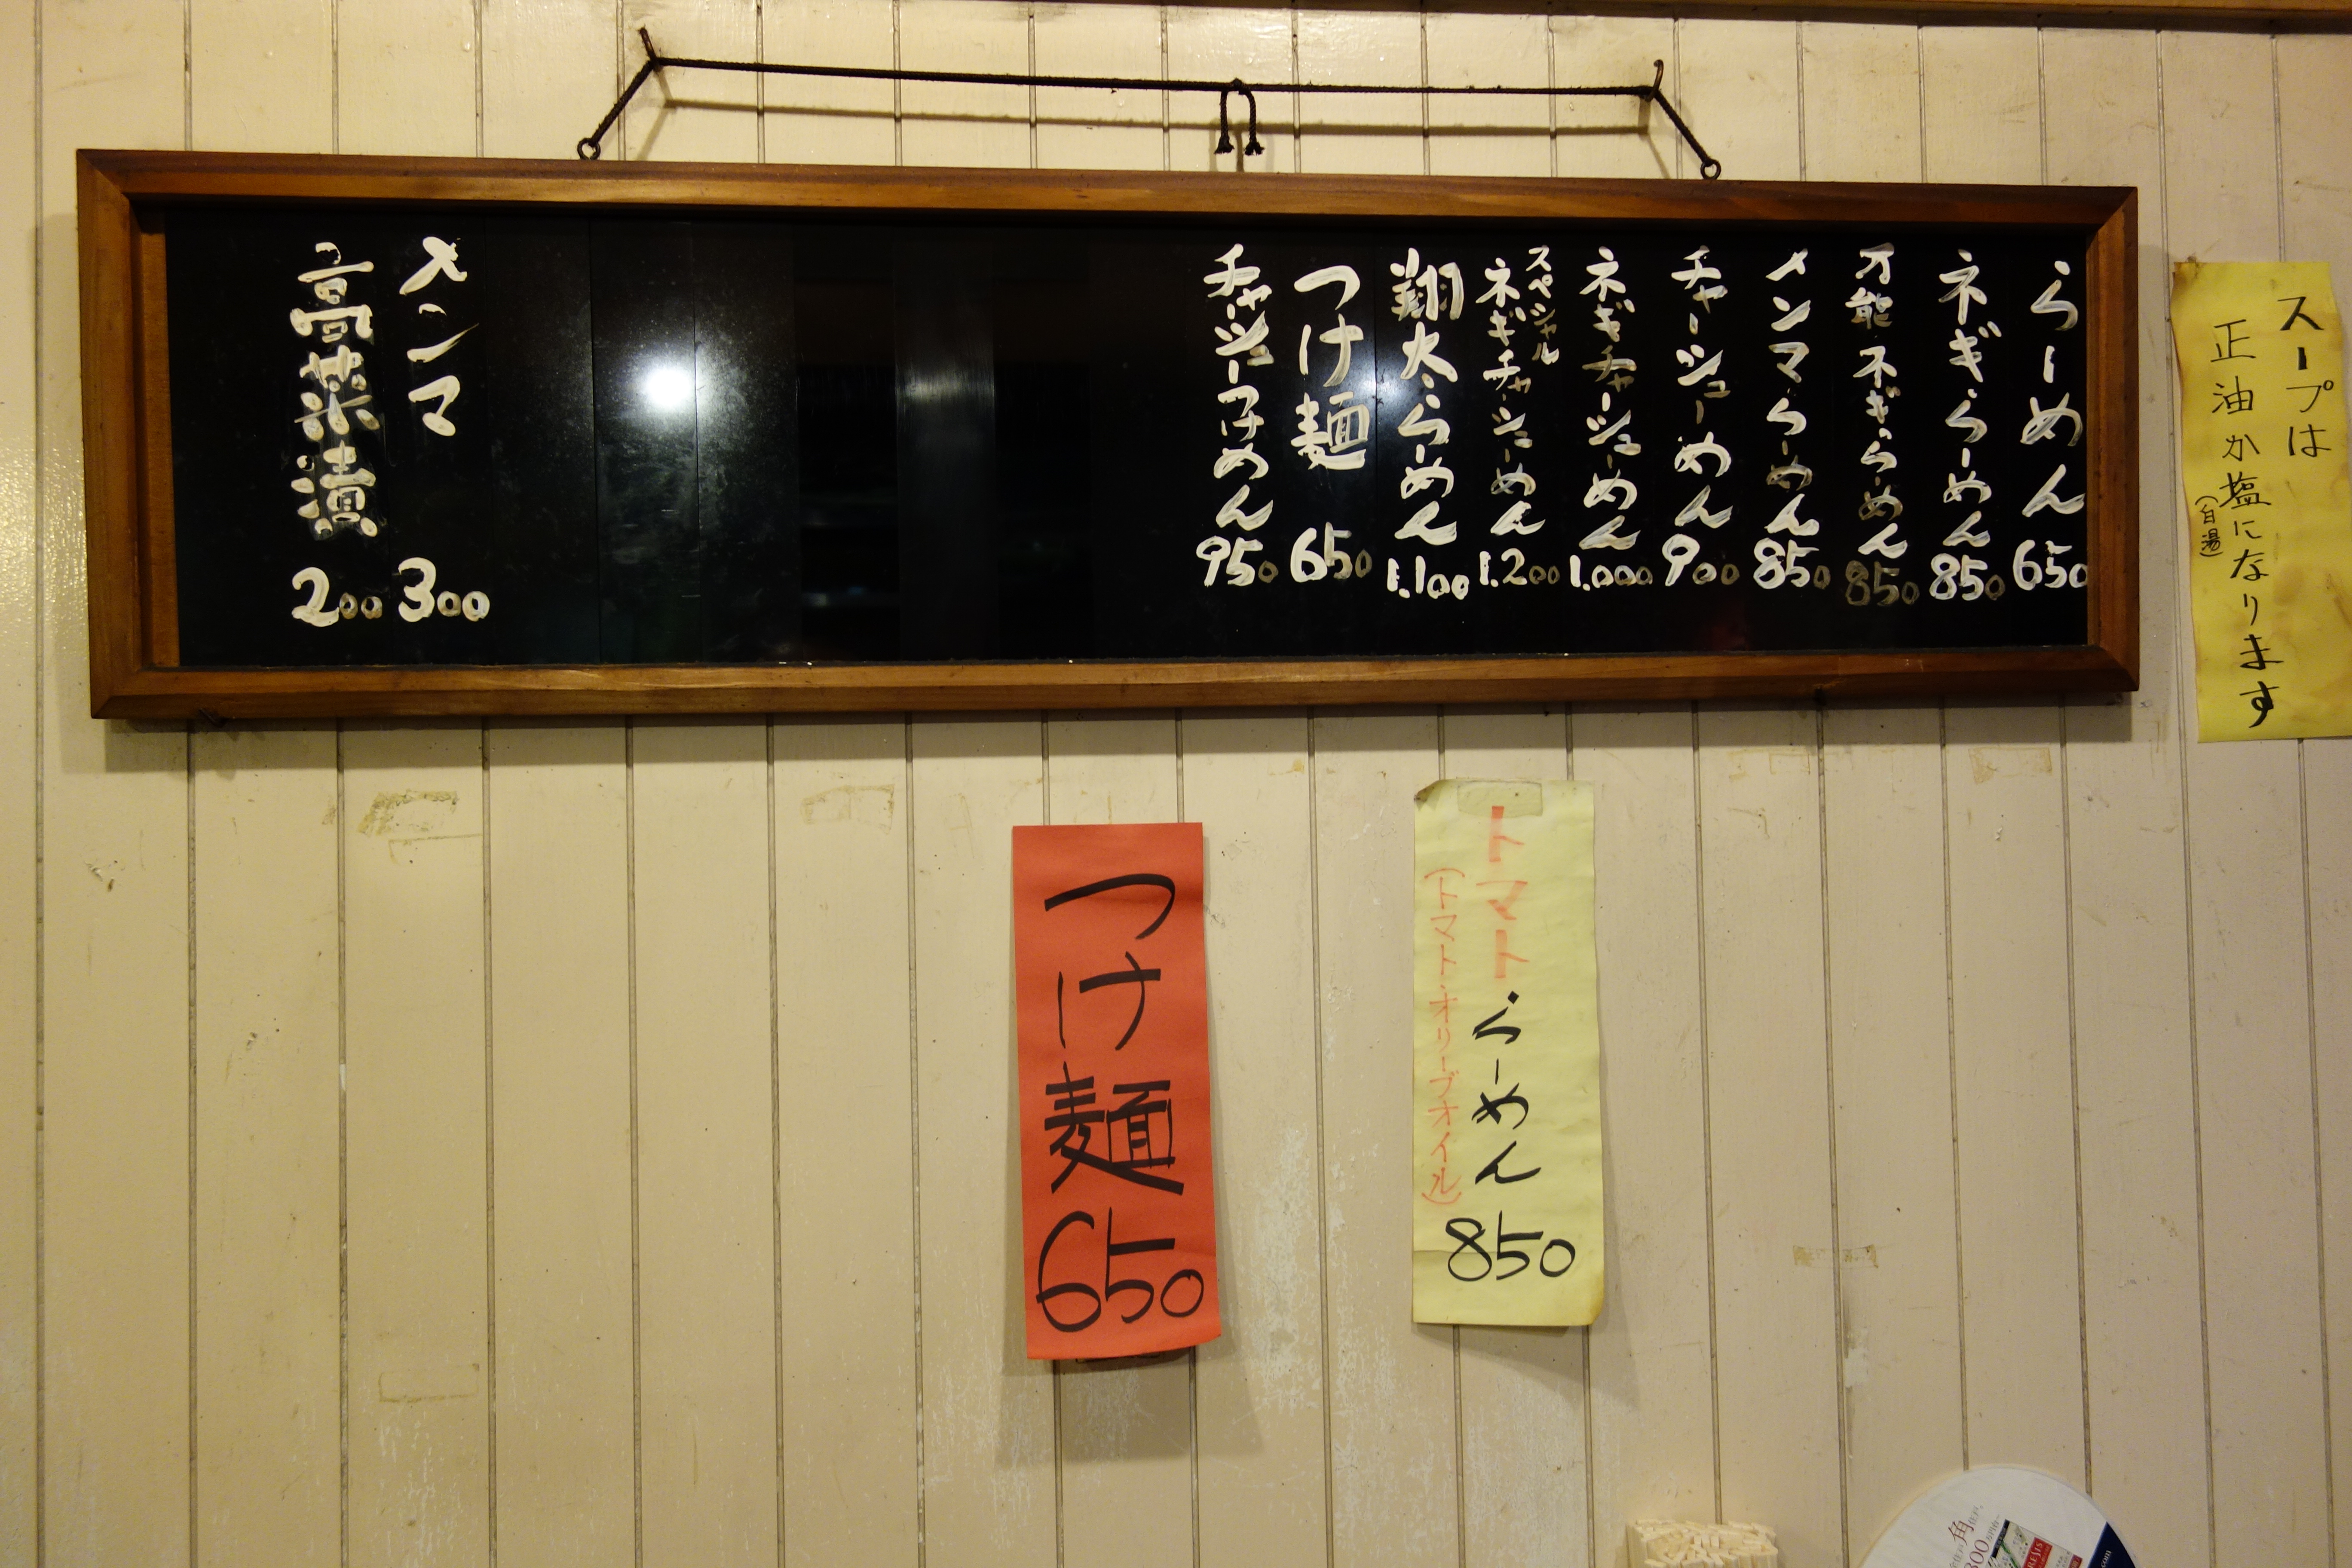 スープは
正油か塩になります
(白湯)
らーめん 650
ネギらーめん 850
万能ネギらーめん 850
メンマらーめん 850
チャーシューめん 900
ネギチャーシューめん 1.000
スペシャル
ネギチャーシューめん 1.200
翔太らーめん 1.100
つけ麺 650
チャーシューつけめん 950
メンマ 300
高菜漬 200
トマトらーめん 850
(トマト・オリーブオイル)
つけ麺 650
角